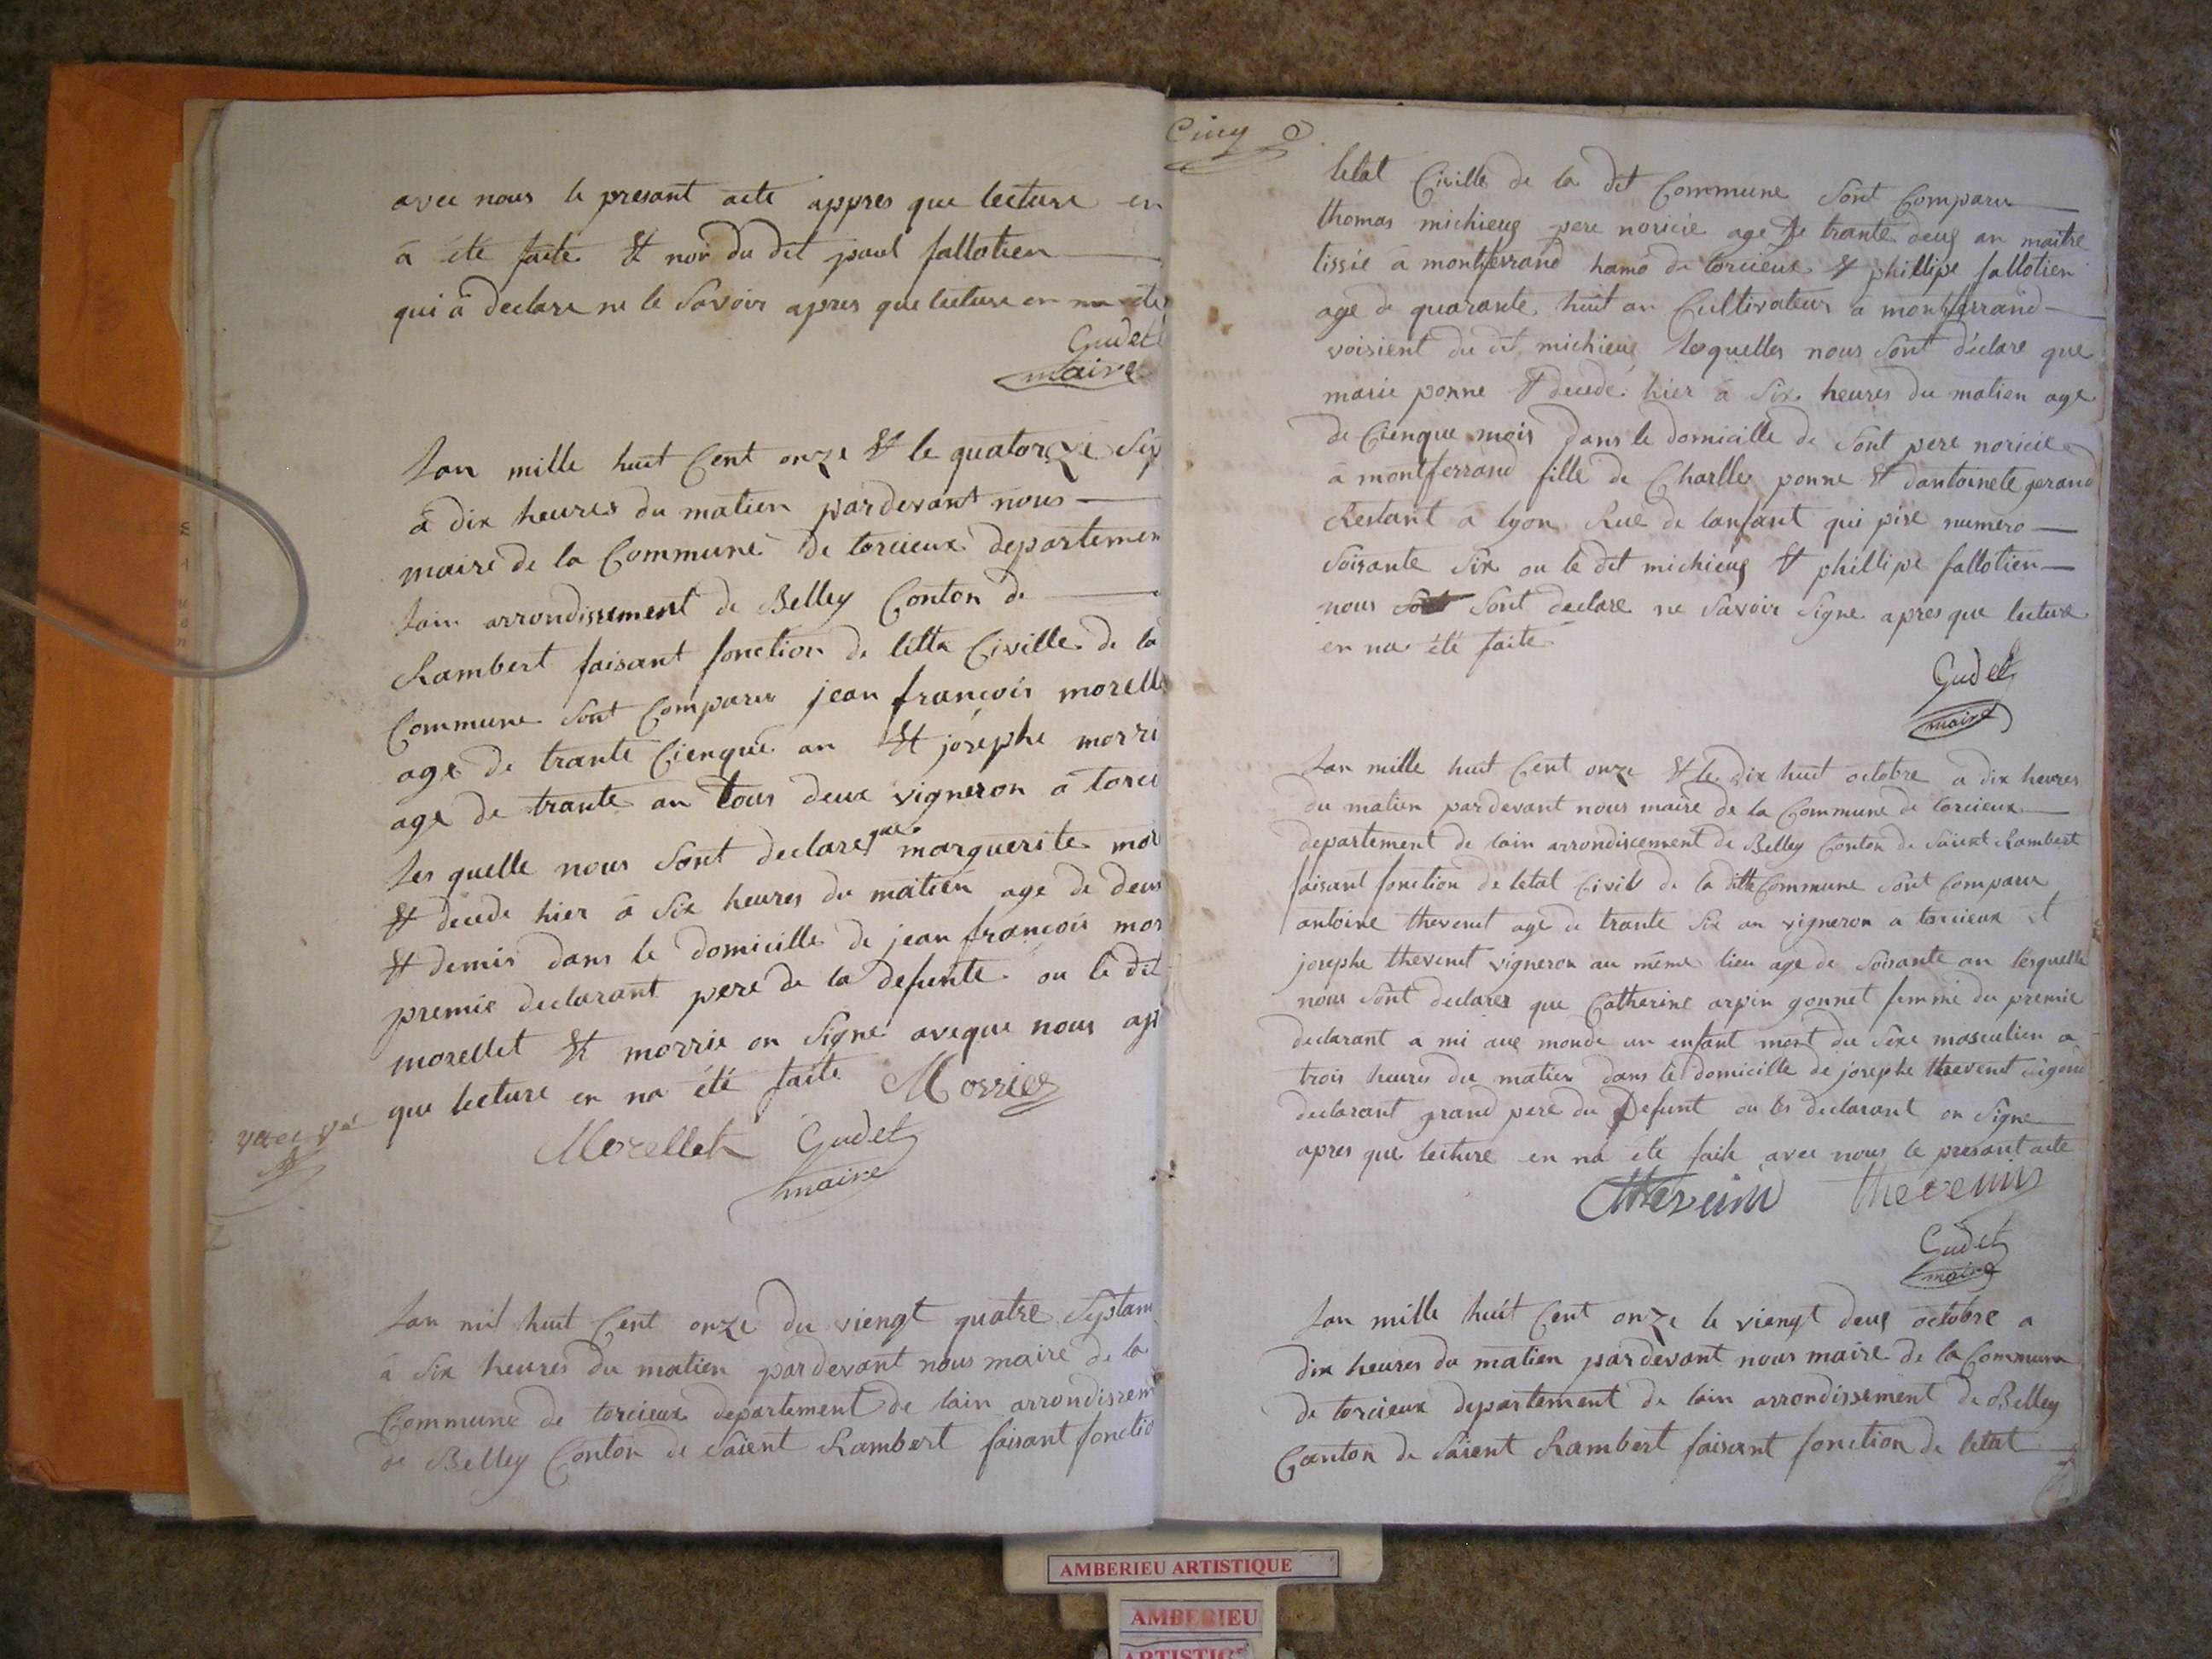 avec nous le presant acte appres que lecture en
à été faite et non du dit paul fallotien
qui à declare ne le Savoir apres que lecture en na été
Gudet
maire
Lan mille huit Cent onze et le quatorze Sep
à dix heures du matien pardevant nous
maire de la Commune de torcieux departemen
Lain arrondissement de Belley Conton de
Rambert faisant fonction de letta Civille de la
Commune Sont Comparu jean françois morelle
age de trante Cienque an et josephe morri
age de trante an tous deux vigneron à torci
Les quelle nous Sont declares que marguerite mor
et decede hier à Six heures du matien age de deus
et demis dans le domicille de jean françois mor
premie declarant pere de la defunte ou le dit
morellet et morrie on Signé aveque nous ap
que lecture en na été faite Morrier
Morellet Gudet
maire
Lan mil huit Cent onze du viengt quatre Septam
à Six heures du matien pardevant nous maire de la
Commune de torcieux departement de lain arrondissem
de Belley Conton de Saient Rambert faisant fonctio
Cinq
letat Civille de la dit Commune Sont Comparu
thomas michieus pere noricie age de trante deus an maitre
tissié à montferrand hamo de torcieux et phillipe fallotien
age de quarante huit an Cultivateur à montferrand
voisient du dit michieus lesquelles nous Sont déclare que
marie ponne et decedé hier à Six heures du matien age
de Cienque mois dans le domicille de Sont pere noricie
à montferrand fille de Charlles ponne et dantoinete gerand
Restant à lyon Rue de lanfant qui pise numero
Soisante Six ou le dit michieus et phillipe fallotien
nous Sont declare ne Savoir Signe apres que lecture
en na été faite
Gudet
maire
Lan mille huit Cent onze et le dix huit octobre a dix heures
du matien pardevant nous maire de la Commune de torcieux
departement de lain arrondiscement de Belley Conton de Saient Rambert
faisant fonction de letat Civile de la ditte Commune Sont Comparu
antoine thevenet agé de trante Six an vigneron a torcieux et
josephe thevenet vigneron au même lieu age de Soisante an lesquelle
nous Sont declares que Catherine arpin gonnet femme du premie
declarant a mi aus monde un enfant mort du Sexe masculien a
trois heures du matien dans le domicille de josephe thevenet
declarant grand pere du Defunt ou les declarant on Signe
apres que lecture en na été faite avec nous le presant acte
thevenin
Gudet
maire
Lan mille huit Cent onze le viengt deus octobre a
dix heures du matien pardevant nous maire de la Commune
de torcieux departement de lain arrondissement de Belley
Canton de Saient Rambert faisant fonction de letat
AMBERIEU ARTISTIQUE
AMBERIEU
ARTISTIQ